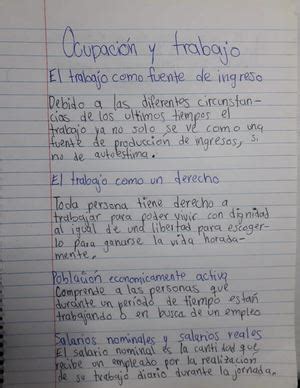 Ocupación y trabajo
El trabajo como fuente de ingreso
Debido a las diferentes circunstan-
cias de los ultimos tiempos el
trabajo ya no solo se ve como una
fuente de produccion de ingresos, si
no de autoestima.
El trabajo como un derecho
Toda persona tiene derecho a
trabajar para poder vivir con dignidad
al igual de una libertad para escoger-
lo para ganarse la vida horada-
mente.
Población economicamente activa
Comprende a las personas que
durante un período de tiempo estan
trabajando o en busca de un empleo
Salarios nominales y salarios reales
El salario nominal es la cantidad que
recibe un empleado por la realización
de su trabajo diario durante la jornada.